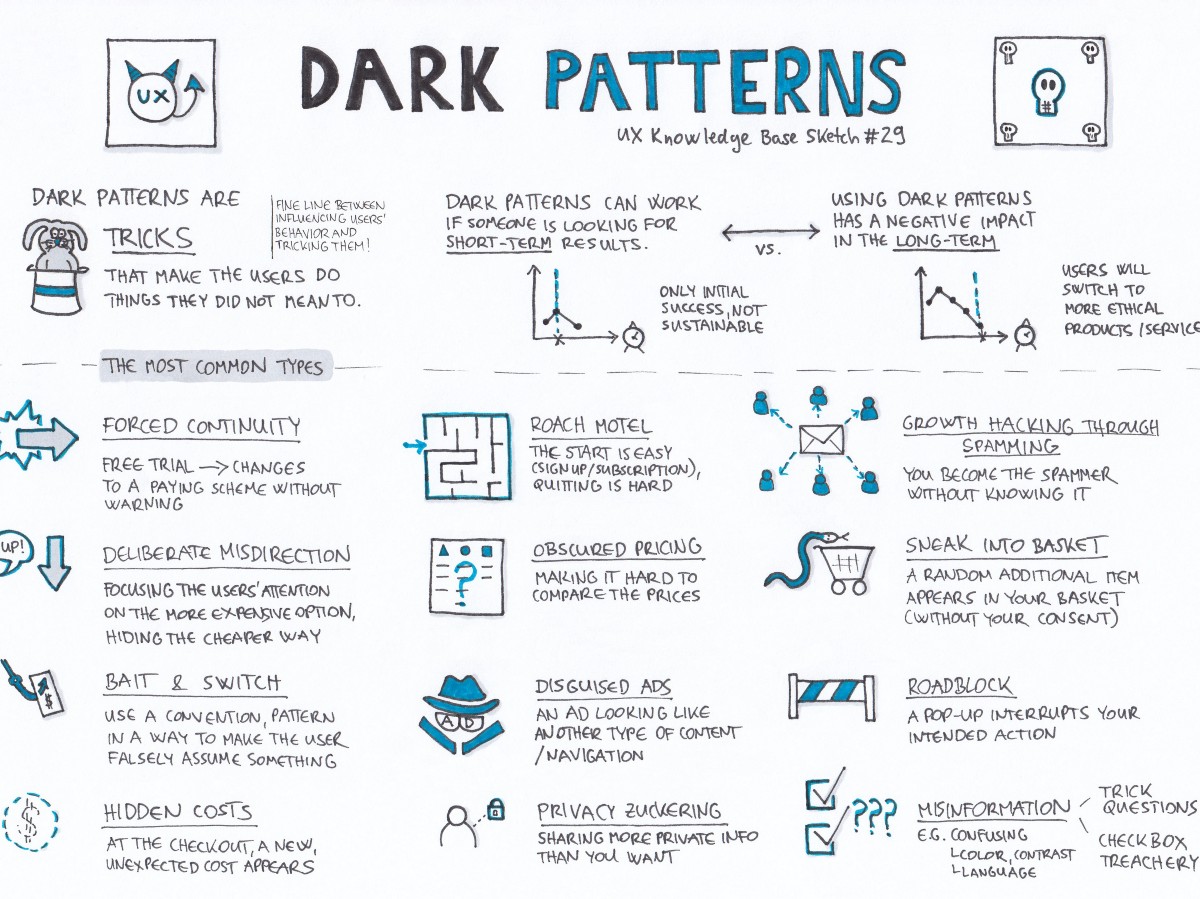 UX
DARK PATTERNS
UX Knowledge Base Sketch #29
DARK PATTERNS ARE
TRICKS
THAT MAKE THE USERS DO
THINGS THEY DID NOT MEAN TO.
FINE LINE BETWEEN
INFLUENCING USERS'
BEHAVIOR AND
TRICKING THEM!
DARK PATTERNS CAN WORK
IF SOMEONE IS LOOKING FOR
SHORT-TERM RESULTS.
VS.
USING DARK PATTERNS
HAS A NEGATIVE IMPACT
IN THE LONG-TERM
ONLY INITIAL
SUCCESS, NOT
SUSTAINABLE
USERS WILL
SWITCH TO
MORE ETHICAL
PRODUCTS/SERVICE
THE MOST COMMON TYPES
FORCED CONTINUITY
FREE TRIAL → CHANGES
TO A PAYING SCHEME WITHOUT
WARNING
ROACH MOTEL
THE START IS EASY
(SIGN UP/SUBSCRIPTION),
QUITTING IS HARD
GROWTH HACKING THROUGH
SPAMMING
YOU BECOME THE SPAMMER
WITHOUT KNOWING IT
UP!
DELIBERATE MISDIRECTION
FOCUSING THE USERS' ATTENTION
ON THE MORE EXPENSIVE OPTION,
HIDING THE CHEAPER WAY
?
OBSCURED PRICING
MAKING IT HARD TO
COMPARE THE PRICES
SNEAK INTO BASKET
A RANDOM ADDITIONAL ITEM
APPEARS IN YOUR BASKET
(WITHOUT YOUR CONSENT)
$
BAIT & SWITCH
USE A CONVENTION, PATTERN
IN A WAY TO MAKE THE USER
FALSELY ASSUME SOMETHING
AD
DISGUISED ADS
AN AD LOOKING LIKE
ANOTHER TYPE OF CONTENT
/NAVIGATION
ROADBLOCK
A POP-UP INTERRUPTS YOUR
INTENDED ACTION
$
HIDDEN COSTS
AT THE CHECKOUT, A NEW,
UNEXPECTED COST APPEARS
PRIVACY ZUCKERING
SHARING MORE PRIVATE INFO
THAN YOU WANT
???
MISINFORMATION
E.G. CONFUSING
COLOR, CONTRAST
LANGUAGE
TRICK
QUESTIONS
CHECKBOX
TREACHERY